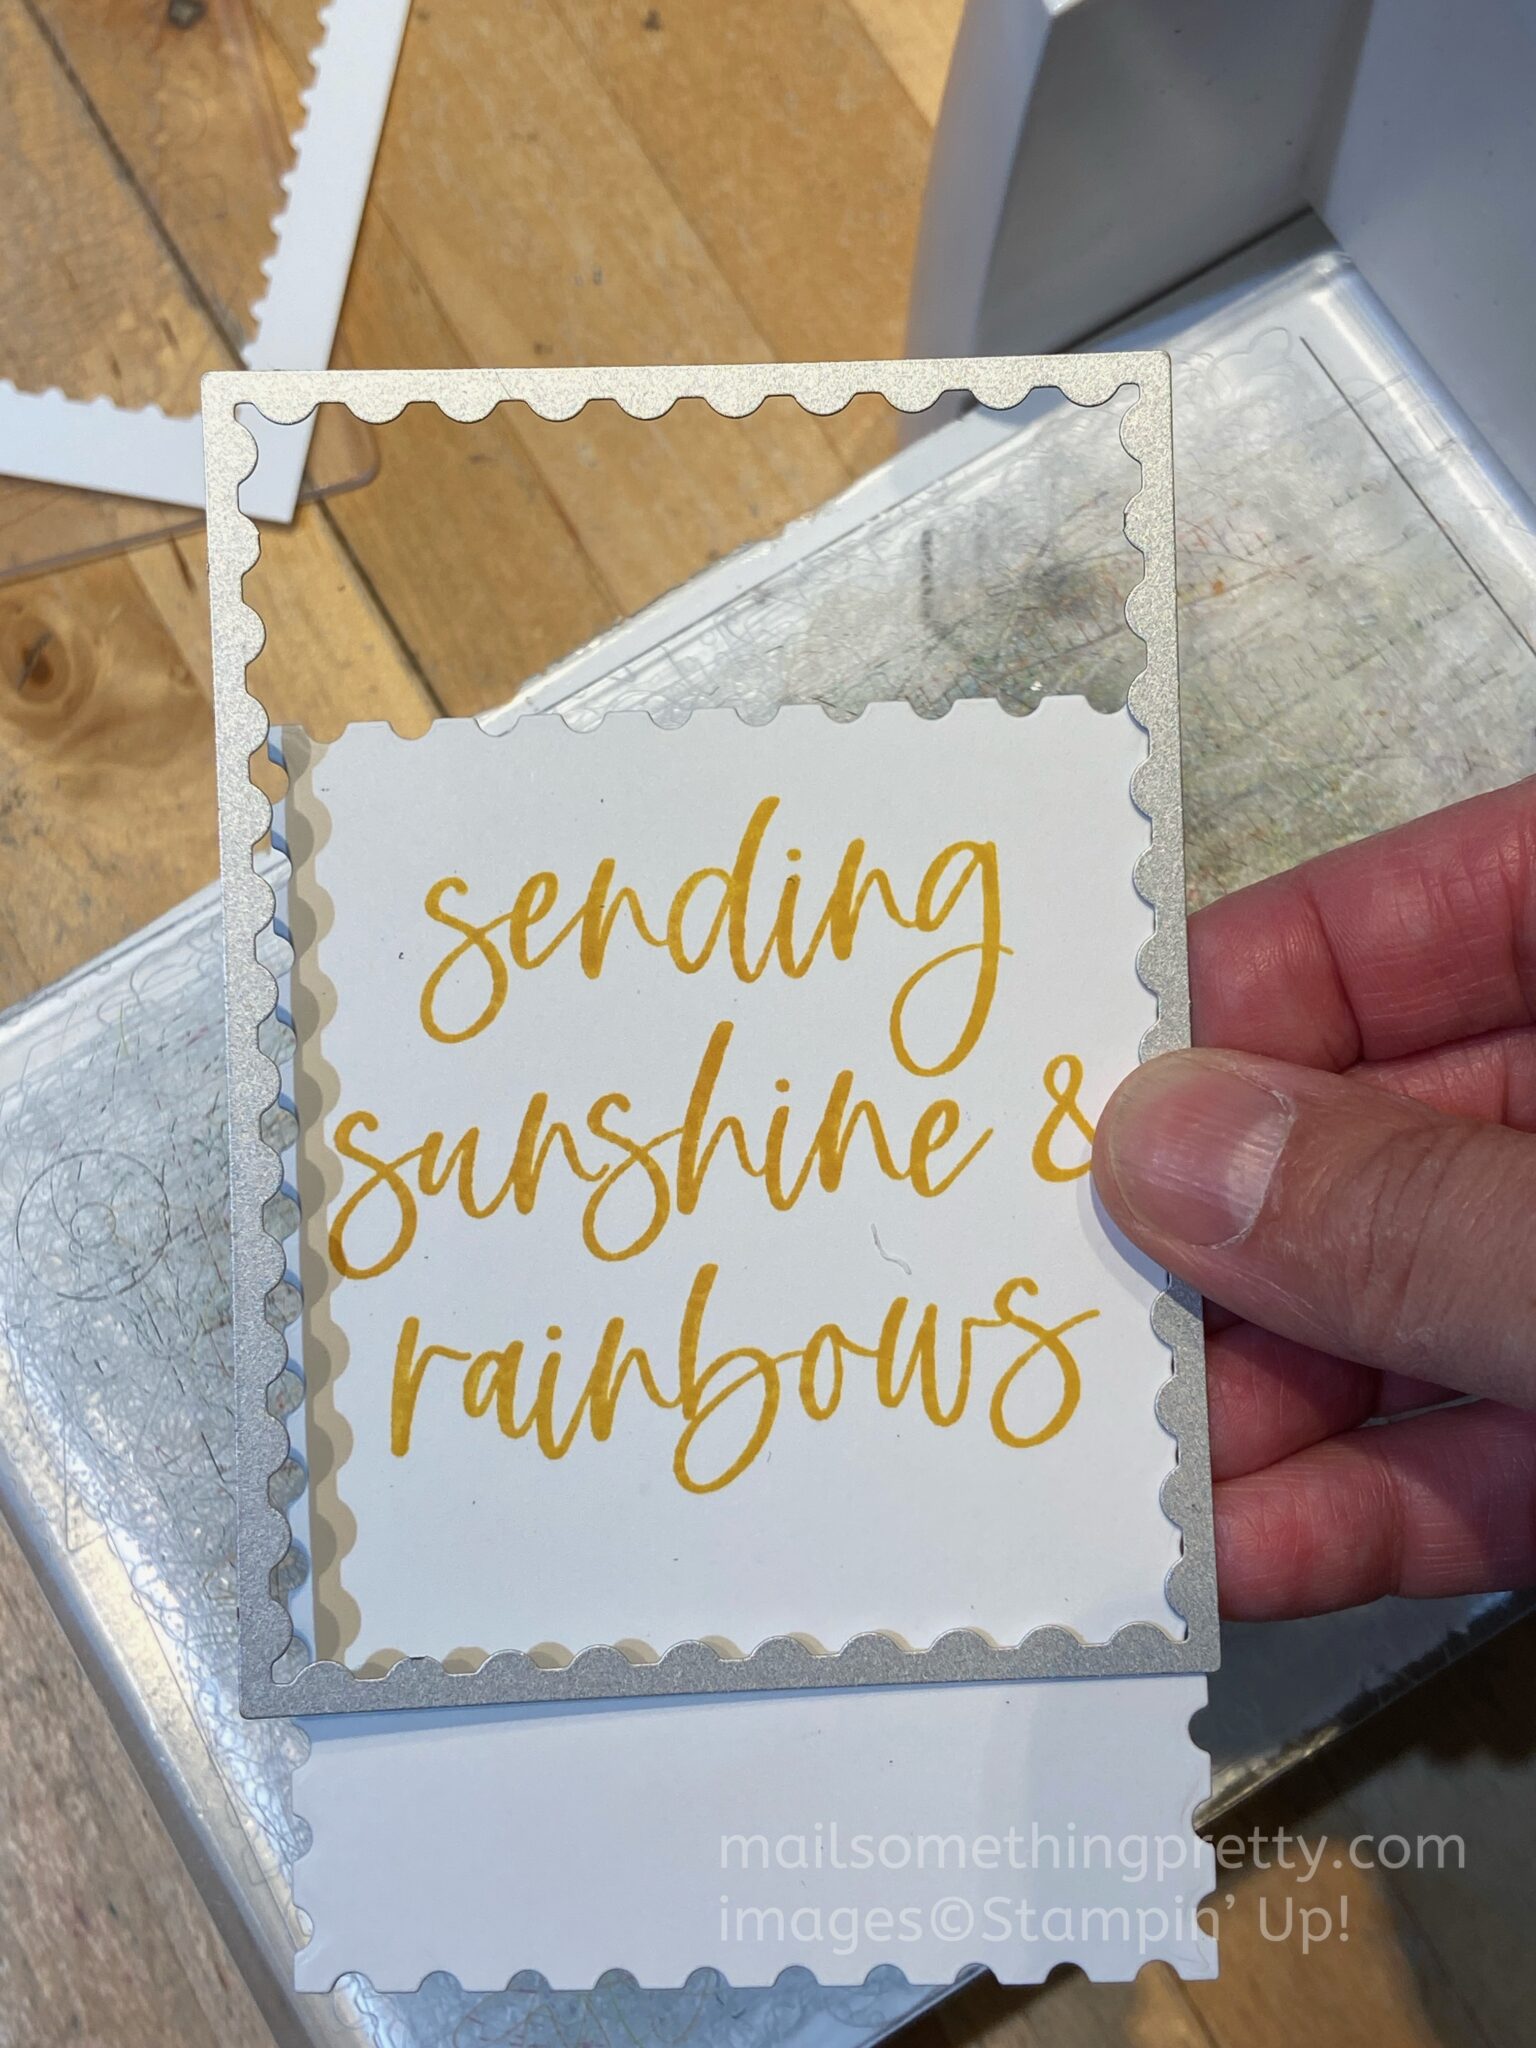 sending
sunshine &
rainbows
mailsomethingpretty.com
images©Stampin' Up!